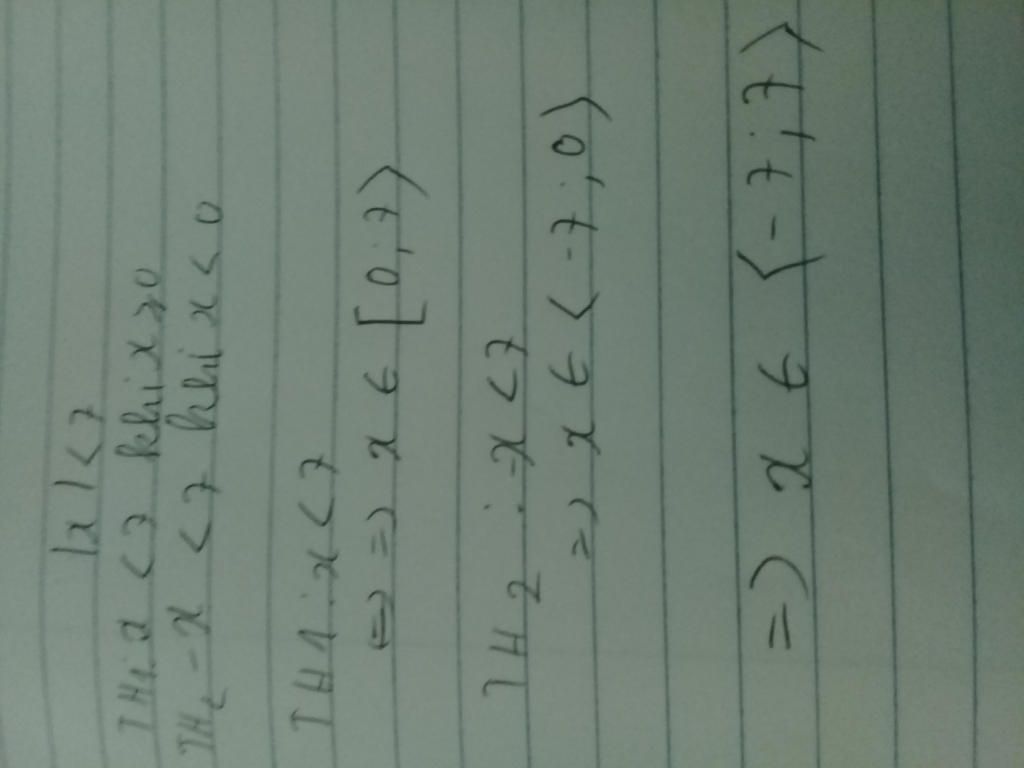 |x| < 7
TH1 x < 7 khi x ≥ 0
TH2 -x < 7 khi x < 0
TH1: x < 7
<=> => x ∈ [0; 7)
TH2: -x < 7
=> x ∈ (-7; 0)
=> x ∈ (-7; 7)